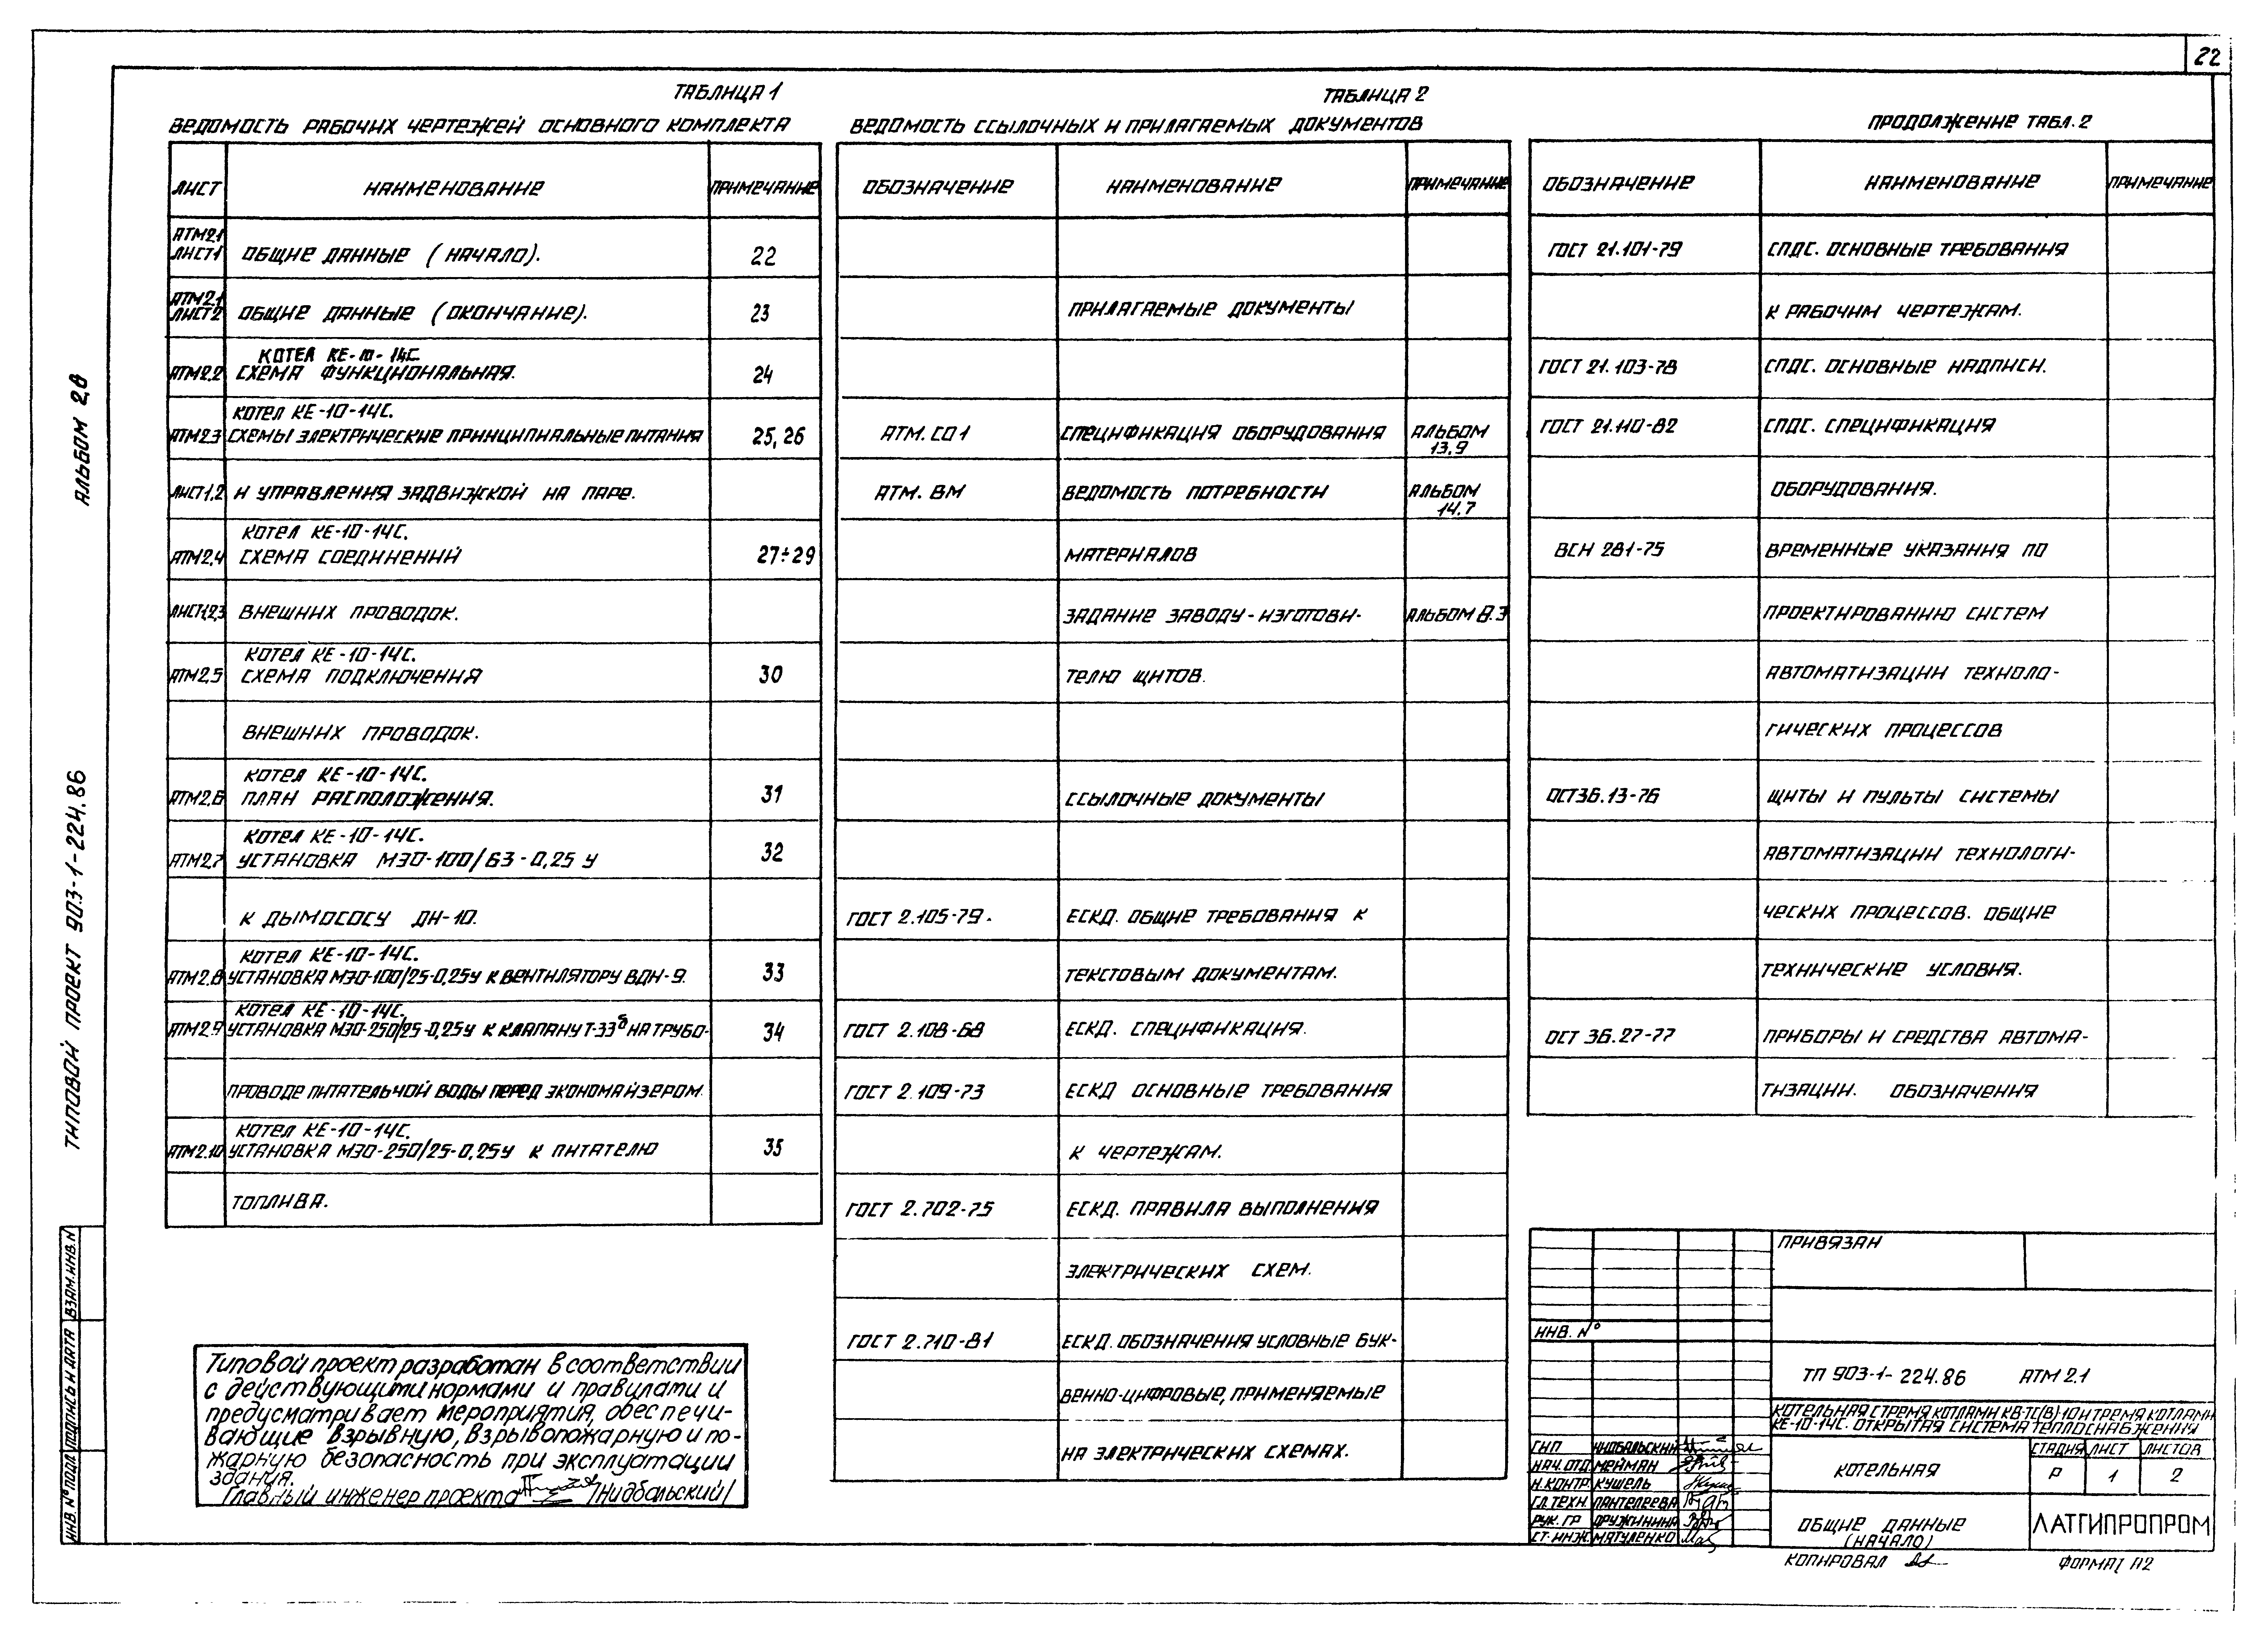 22
ТАБЛИЦА 1
ВЕДОМОСТЬ РАБОЧИХ ЧЕРТЕЖЕЙ ОСНОВНОГО КОМПЛЕКТА
ЛИСТ НАИМЕНОВАНИЕ ПРИМЕЧАНИЕ
АТМ2.1
ЛИСТ1 ОБЩИЕ ДАННЫЕ (НАЧАЛО). 22
АТМ2.1
ЛИСТ2 ОБЩИЕ ДАННЫЕ (ОКОНЧАНИЕ). 23
КОТЕЛ КЕ-10-14С.
АТМ2.2 СХЕМА ФУНКЦИОНАЛЬНАЯ. 24
КОТЕЛ КЕ-10-14С.
АТМ2.3 СХЕМЫ ЭЛЕКТРИЧЕСКИЕ ПРИНЦИПИАЛЬНЫЕ ПИТАНИЯ 25,26
ЛИСТ1,2 И УПРАВЛЕНИЯ ЗАДВИЖКОЙ НА ПАРЕ.
КОТЕЛ КЕ-10-14С.
АТМ2.4 СХЕМА СОЕДИНЕНИЙ 27÷29
ЛИСТ1,2,3 ВНЕШНИХ ПРОВОДОК.
КОТЕЛ КЕ-10-14С.
АТМ2.5 СХЕМА ПОДКЛЮЧЕНИЯ 30
ВНЕШНИХ ПРОВОДОК.
КОТЕЛ КЕ-10-14С.
АТМ2.6 ПЛАН РАСПОЛОЖЕНИЯ. 31
КОТЕЛ КЕ-10-14С.
АТМ2.7 УСТАНОВКА МЭО-100/63-0,25 У 32
К ДЫМОСОСУ ДН-10.
КОТЕЛ КЕ-10-14С.
АТМ2.8 УСТАНОВКА МЭО-100/25-0,25У К ВЕНТИЛЯТОРУ ВДН-9. 33
КОТЕЛ КЕ-10-14С.
АТМ2.9 УСТАНОВКА МЭО-250/25-0,25У К КЛАПАНУ Т-33б НА ТРУБО- 34
ПРОВОДЕ ПИТАТЕЛЬНОЙ ВОДЫ ПЕРЕД ЭКОНОМАЙЗЕРОМ.
КОТЕЛ КЕ-10-14С.
АТМ2.10 УСТАНОВКА МЭО-250/25-0,25У К ПИТАТЕЛЮ 35
ТОПЛИВА.
ТАБЛИЦА 2
ВЕДОМОСТЬ ССЫЛОЧНЫХ И ПРИЛАГАЕМЫХ ДОКУМЕНТОВ
ОБОЗНАЧЕНИЕ НАИМЕНОВАНИЕ ПРИМЕЧАНИЕ
ПРИЛАГАЕМЫЕ ДОКУМЕНТЫ
АТМ. СО1 СПЕЦИФИКАЦИЯ ОБОРУДОВАНИЯ АЛЬБОМ
13.9
АТМ. ВМ ВЕДОМОСТЬ ПОТРЕБНОСТИ АЛЬБОМ
14.7
МАТЕРИАЛОВ
ЗАДАНИЕ ЗАВОДУ-ИЗГОТОВИ- АЛЬБОМ 8.3
ТЕЛЮ ЩИТОВ.
ССЫЛОЧНЫЕ ДОКУМЕНТЫ
ГОСТ 2.105-79. ЕСКД. ОБЩИЕ ТРЕБОВАНИЯ К
ТЕКСТОВЫМ ДОКУМЕНТАМ.
ГОСТ 2.108-68 ЕСКД. СПЕЦИФИКАЦИЯ.
ГОСТ 2.109-73 ЕСКД ОСНОВНЫЕ ТРЕБОВАНИЯ
К ЧЕРТЕЖАМ.
ГОСТ 2.702-75 ЕСКД. ПРАВИЛА ВЫПОЛНЕНИЯ
ЭЛЕКТРИЧЕСКИХ СХЕМ.
ГОСТ 2.710-81 ЕСКД. ОБОЗНАЧЕНИЯ УСЛОВНЫЕ БУК-
ВЕННО-ЦИФРОВЫЕ, ПРИМЕНЯЕМЫЕ
НА ЭЛЕКТРИЧЕСКИХ СХЕМАХ.
ПРОДОЛЖЕНИЕ ТАБЛ. 2
ОБОЗНАЧЕНИЕ НАИМЕНОВАНИЕ ПРИМЕЧАНИЕ
ГОСТ 21.101-79 СПДС. ОСНОВНЫЕ ТРЕБОВАНИЯ
К РАБОЧИМ ЧЕРТЕЖАМ.
ГОСТ 21.103-78 СПДС. ОСНОВНЫЕ НАДПИСИ.
ГОСТ 21.110-82 СПДС. СПЕЦИФИКАЦИЯ
ОБОРУДОВАНИЯ.
ВСН 281-75 ВРЕМЕННЫЕ УКАЗАНИЯ ПО
ПРОЕКТИРОВАНИЮ СИСТЕМ
АВТОМАТИЗАЦИИ ТЕХНОЛО-
ГИЧЕСКИХ ПРОЦЕССОВ
ОСТ36.13-76 ЩИТЫ И ПУЛЬТЫ СИСТЕМЫ
АВТОМАТИЗАЦИИ ТЕХНОЛОГИ-
ЧЕСКИХ ПРОЦЕССОВ. ОБЩИЕ
ТЕХНИЧЕСКИЕ УСЛОВИЯ.
ОСТ 36.27-77 ПРИБОРЫ И СРЕДСТВА АВТОМА-
ТИЗАЦИИ. ОБОЗНАЧЕНИЯ
Типовой проект разработан в соответствии
с действующими нормами и правилами и
предусматривает мероприятия, обеспечи-
вающие взрывную, взрывопожарную и по-
жарную безопасность при эксплуатации
здания.
Главный инженер проекта /Нидбальский/
ПРИВЯЗАН
ИНВ. №
ТП 903-1-224.86 АТМ 2.1
КОТЕЛЬНАЯ С ТРЕМЯ КОТЛАМИ КВ-ТС(В)-10 И ТРЕМЯ КОТЛАМИ
КЕ-10-14С. ОТКРЫТАЯ СИСТЕМА ТЕПЛОСНАБЖЕНИЯ
ГИП НИДБАЛЬСКИЙ
НАЧ. ОТД. МЕЙМАН
Н. КОНТР. КУШЕЛЬ
ГЛ. ТЕХН. ПАНТЕЛЕЕВА
РУК. ГР ДРУЖИНИНА
СТ. ИНЖ. МАТУЛЕНКО
КОТЕЛЬНАЯ
СТАДИЯ ЛИСТ ЛИСТОВ
Р 1 2
ОБЩИЕ ДАННЫЕ
(НАЧАЛО)
ЛАТГИПРОПРОМ
КОПИРОВАЛ
ФОРМАТ А2
АЛЬБОМ 2,8
ТИПОВОЙ ПРОЕКТ 903-1-224.86
ИНВ. № ПОДЛ ПОДПИСЬ И ДАТА ВЗАМ. ИНВ. N